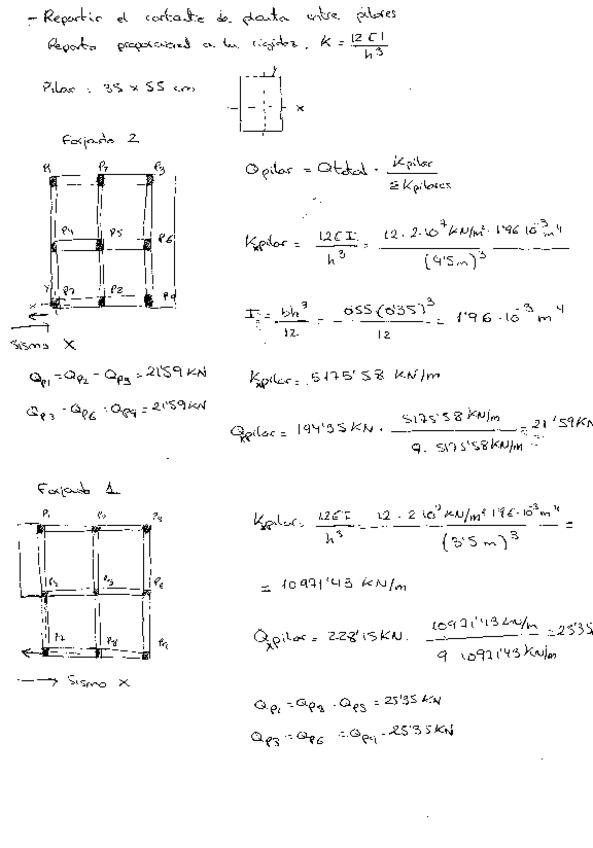 - Repartir el cortante de planta entre pilares
Reparto proporcional a la rigidez. K = 12EI / h³
Pilar: 35 x 55 cm
x
Forjado 2
P1 P2 P3
P4 P5 P6
Y P7 P2 P9
x
Sismo X
Qpilar = Qtotal · Kpilar / ΣKpilares
Kxpilar = 12EI / h³ = 12 · 2·10⁷ KN/m² · 1'96·10⁻³ m⁴ / (4'5m)³
I = bh³ / 12 = 0'55·(0'35)³ / 12 = 1'96·10⁻³ m⁴
Kxpilar = 5175'58 KN/m
Qp1 = Qp2 = Qp3 = 21'59 KN
Qp3 = Qp6 = Qp9 = 21'59 KN
Qxpilar = 194'35 KN · 5175'58 KN/m / 9 · 5175'58 KN/m = 21'59 KN
Forjado 1
P1 P2 P3
P6
P7 P8 P9
Sismo X
Kxpilar = 12EI / h³ = 12 · 2·10⁷ KN/m² 1'96·10⁻³ m⁴ / (3'5 m)³ =
= 10971'43 KN/m
Qxpilar = 228'15 KN · 10971'43 KN/m / 9 · 10971'43 KN/m = 25'35
Qp1 = Qp2 = Qp3 = 25'35 KN
Qp3 = Qp6 = Qp9 = 25'35 KN